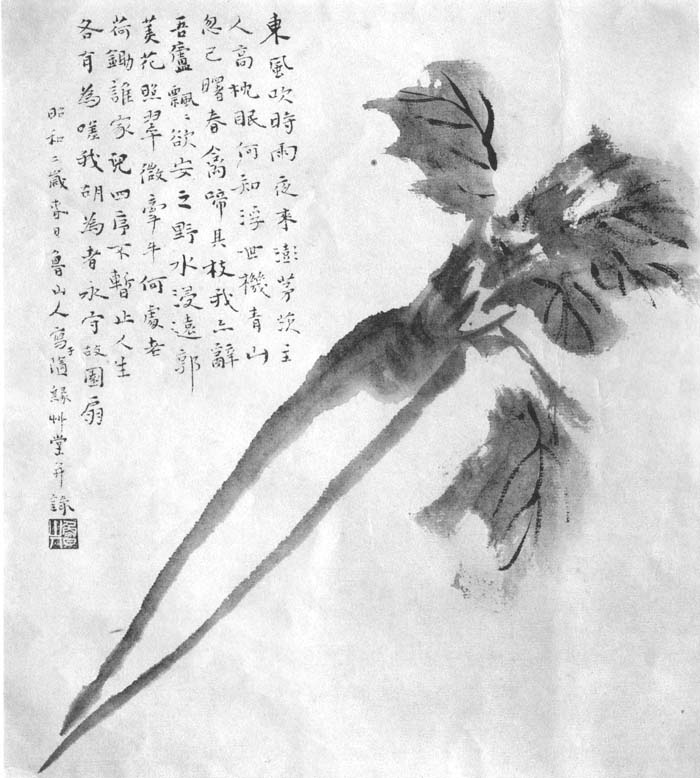 東風吹時雨夜来澎茅茨主
人高枕眠何知浮世機青山
忽已曙春禽啼具枝我亦辭
吾廬飄〻欲安之野水浸遠郭
美花照翠微牽牛何處老
荷鋤誰家児四序不暫止人生
各有為嗟我胡為者永守故園扉
昭和二歳春日魯山人寫于隨緣艸堂并錄